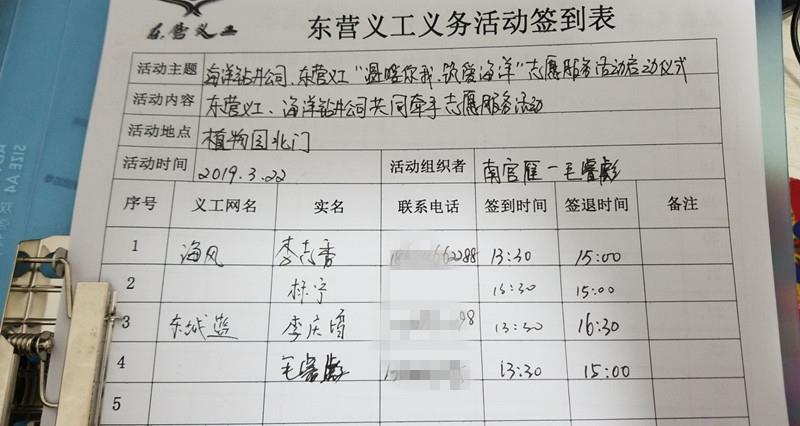 东营义工
东营义工义务活动签到表
活动主题 海洋钻井公司、东营义工“温暖你我、筑爱海洋”志愿服务活动启动仪式
活动内容 东营义工、海洋钻井公司共同牵手志愿服务活动
活动地点 植物园北门
活动时间 2019.3.22 活动组织者 南宫雁－毛睿彪
序号 义工网名 实名 联系电话 签到时间 签退时间 备注
1 海风 李志香 662288 13:30 15:00
2 林宁 13:30 15:00
3 东城 李庆 98 13:30 16:30
4 毛睿彪 13:30 15:00
5
SIZE A4